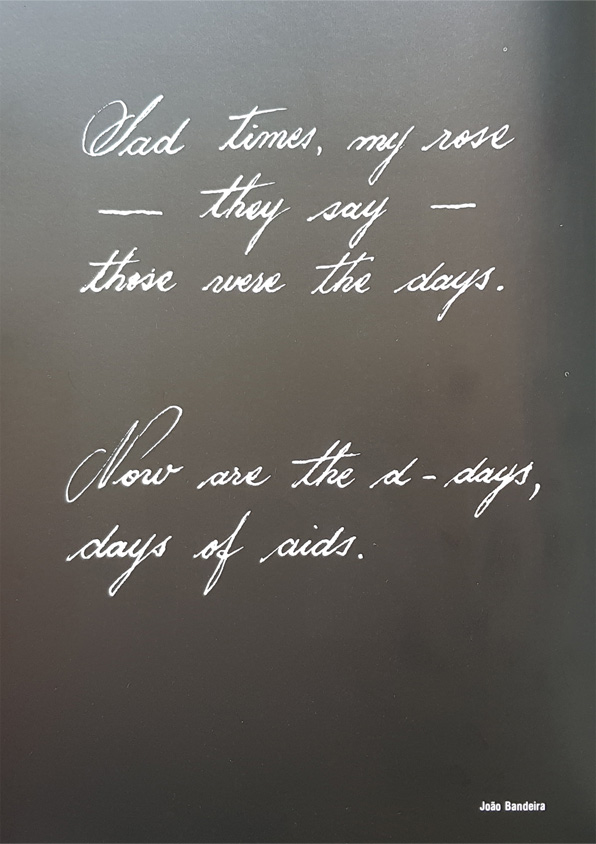 Sad times, my rose
— they say —
those were the days.
Now are the d-days,
days of aids.
João Bandeira